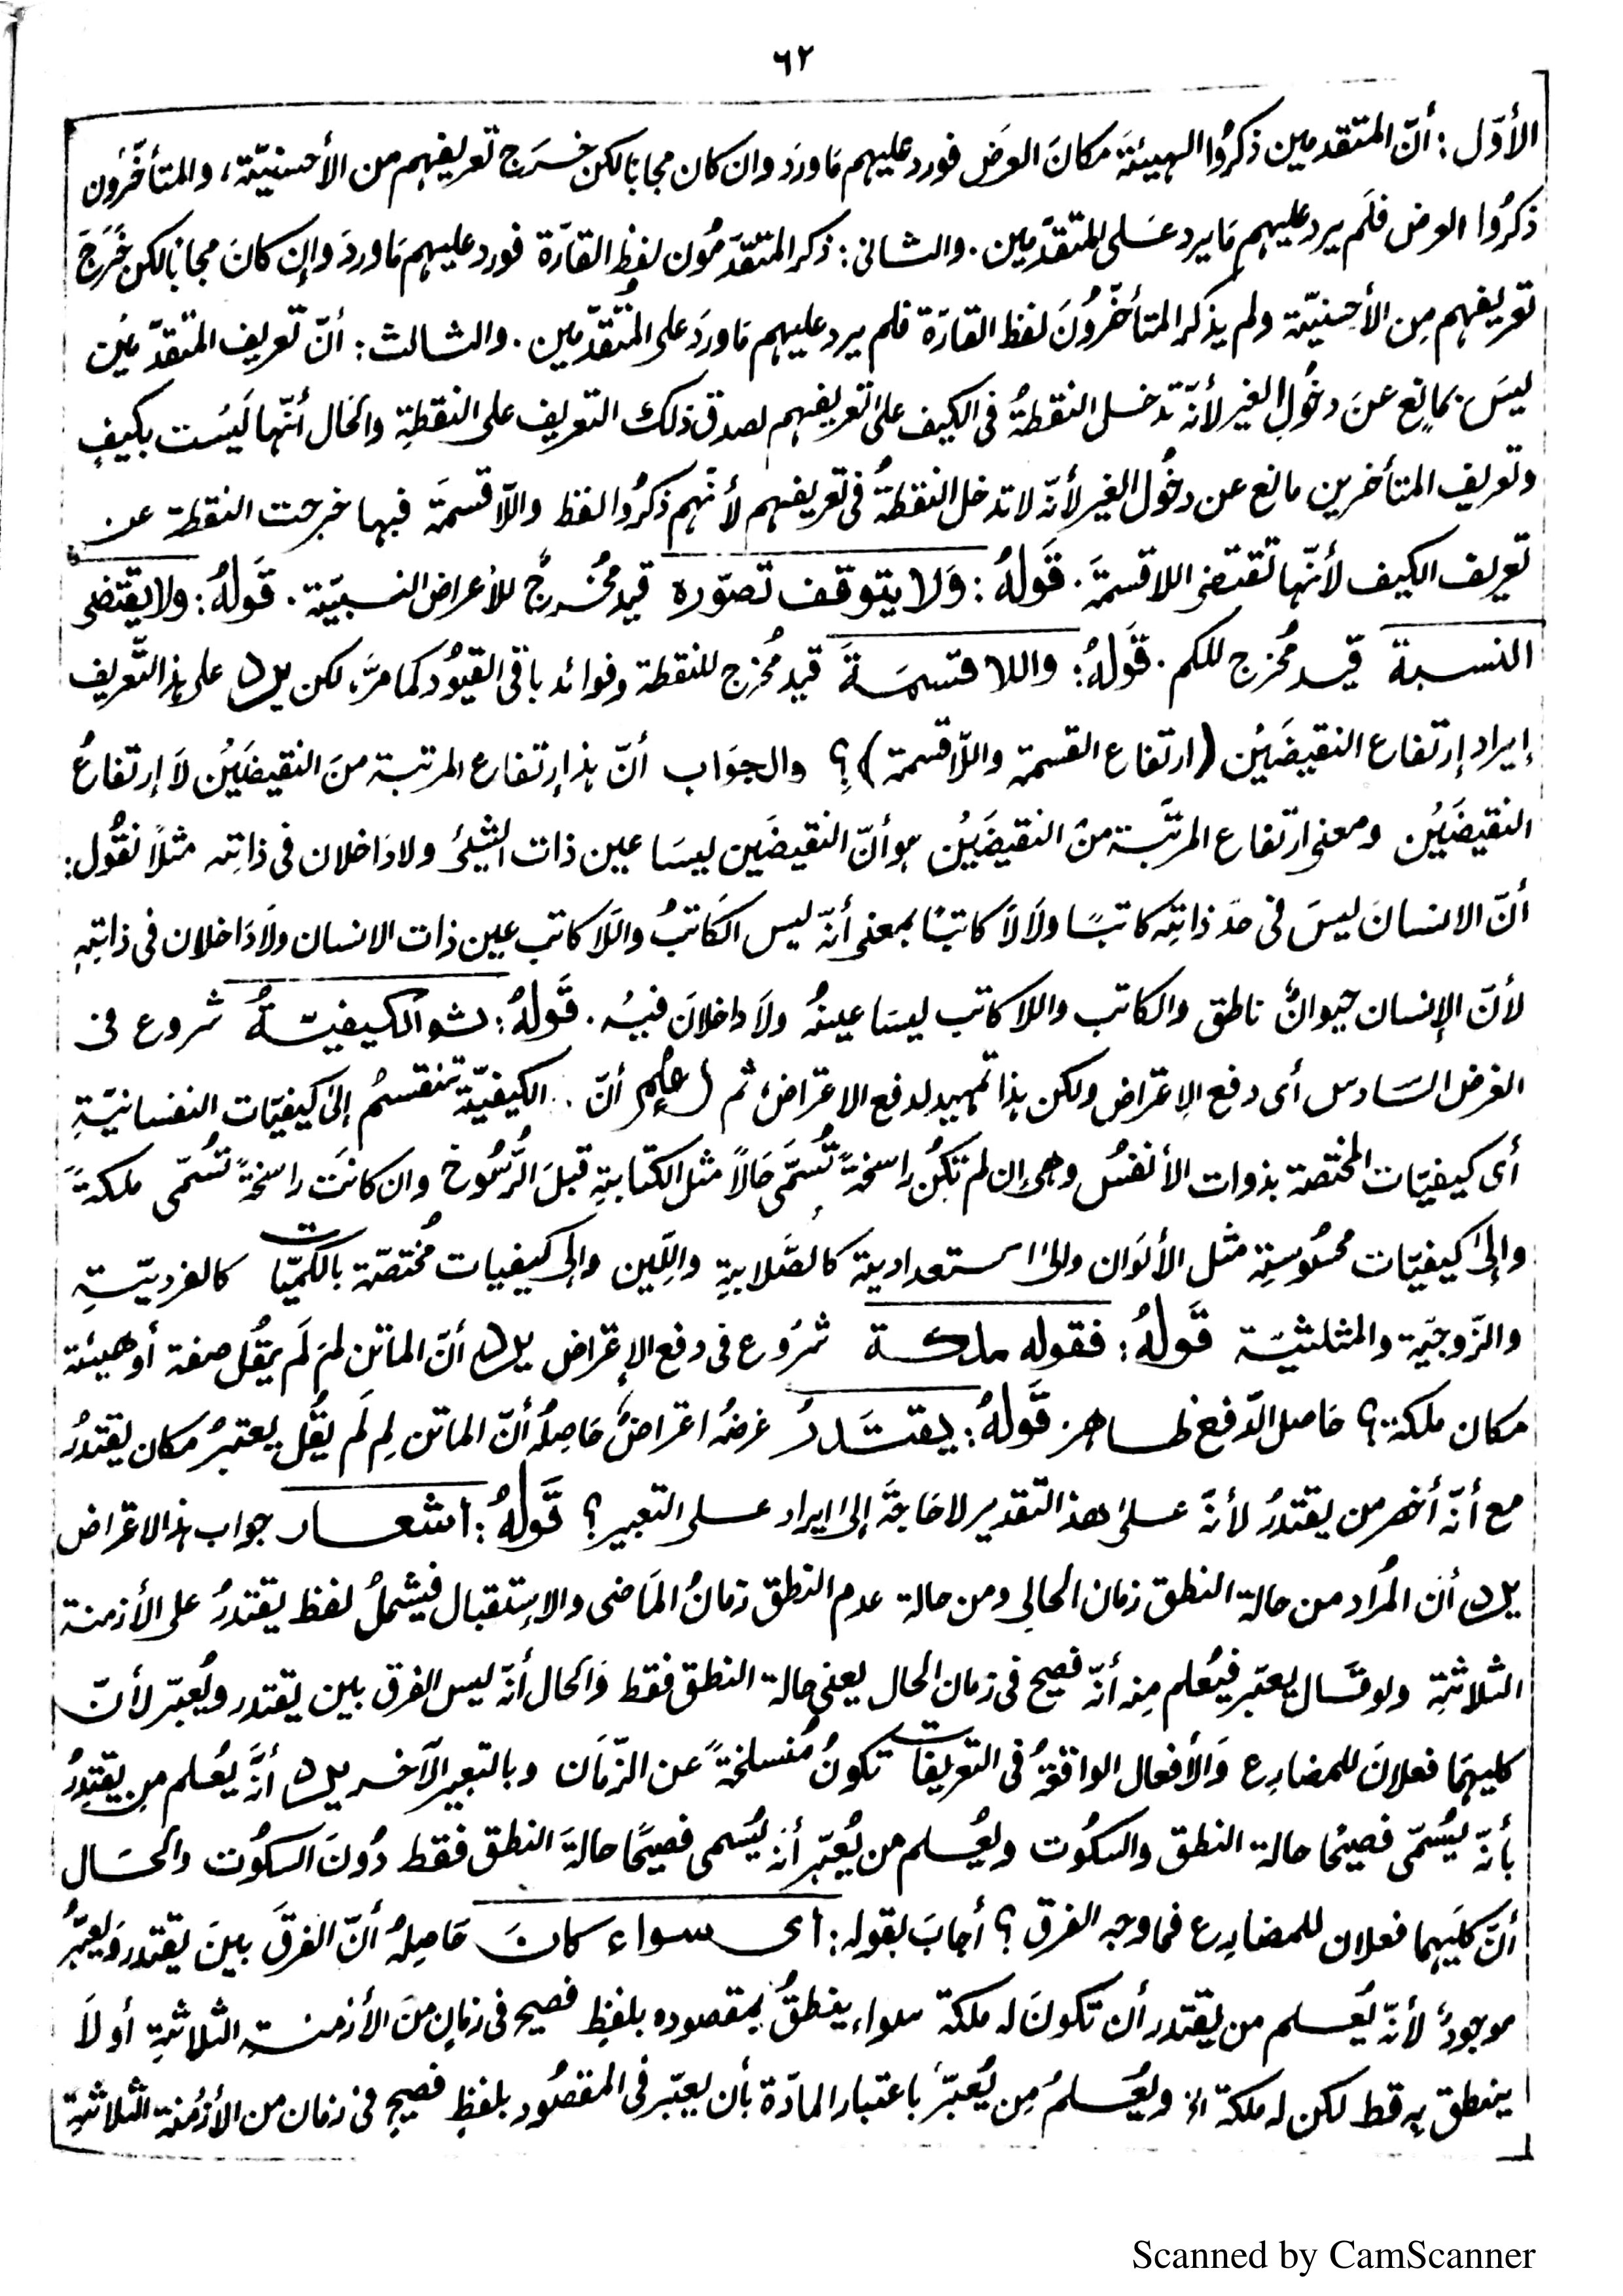 ٦٢
الأوّل: أنّ المتقدمين ذكرُوا الهيئةَ مكانَ العرَض فورد عليهم مَا ورَد وان كان مجابا لكن خرَج تعريفهم من الأحسنيّة، والمتأخّرُون
ذكرُوا العرض فلَم يرد عليهم مَا يرد عَلى المتقدّمين. والثانى: ذكر المتقدّمُون لفظ القارّة فورد عليهم مَا وردَ وإن كانَ مجابا لكن خَرَجَ
تعريفهم مِن الأحسنيّة ولم يذكر المتأخّرُونَ لفظ القارّة فلم يرد عليهم مَا ورَد على المتقدّمين. والثالث: أنّ تعريف المتقدّمين
ليسَ بمانع عنَ دخُولِ الغير لأنّه تدخل النقطةُ فى الكيف على تعريفهم لصدق ذلك التعريف على النقطةِ والحال أنّها لَيسَت بكيفٍ
وتعريف المتأخرين مانع عن دخُول الغير لأنّه لا تدخل النقطةُ فى تعريفهم لأنّهم ذكرُوا لفظ واللّا قسمَة فبها خرجت النقطة عن
تعريف الكيف لأنّها تقتضى اللا قسمةَ. قَولهُ: وَلا يتوقف تصوّره قيد مُخرجٌ للأعراض النسبيّة. قَولهُ: ولا يقتضى
النسبة قيد مُخرج للكم. قَولهُ: واللا قسمَةَ قيد مُخرج للنقطة وفوائد باقى القيُود كما مرَّ، لكن يرد على هذا التّعريف
إيراد إرتفاع النقيضَيْن (ارتفاع القسمة واللّا قسمة)؟ والجوَاب أنّ هذا إرتفاع المرتبة منَ النقيضَيْن لَا إرتفاعُ
النقيضَيْن ومعنى ارتفاع المرتَبة منَ النقيضَيْن هو أنّ النقيضَين ليسَا عين ذات الشيئ ولا دَاخلان فى ذاتِه مثلاً نقُول:
أنّ الانسانَ ليسَ فى حدّ ذاتِه كاتبًا ولَا لَا كاتبًا بمعنى أنّه ليس الكَاتبُ واللَا كاتب عين ذات الانسان ولَا دَاخلان فى ذاتِهِ
لأنّ الإنسان حيوانٌ ناطق والكاتب واللا كاتب ليسَا عينهُ ولَا داخلانَ فيهُ. قَولهُ: ثم الكيفيّةُ شروع فى
الغرض السَادس أى دفع الإعتراض ولكن هذا تمهيد لدفع الاعتراض، ثم إعلم أنّ الكيفيّة تنقسمُ إلىٰ كيفيّات النفسانيّةِ
أى كيفيّات المختصة بذوات الأنفسُ وهى إن لم تكُن راسخةً تُسمَّى حَالاً مثل الكتابةِ قبلَ الرُسُوخ وان كانَت راسخةً تُسمّى ملكةً
وإلىٰ كيفيّات محسُوسةِ مثل الألوَان والىٰ استعدادية كالصَّلابةِ واللِين وإلى كيفيات مُختصّة بالكميّات كالفرديّةِ
والزّوجيّة والمثلثيّة قَولهُ: فقوله ملكة شرُوع فى دفع الإعتراض يرد أنّ الماتن لِمَ لَم يقُل صفة أو هيئة
مكان ملكة؟ حَاصل الدّفع ظاهر. قَولهُ: يقتدرُ غرضُه اعتراضٌ حَاصِلهُ أنّ الماتن لِم لَم يقُل يعتبرُ مكان يقتدرُ
مع أنّه أخصر من يقتدرُ لأنّ عَلىٰ هذ التقدير لا حَاجةَ إلىٰ ايراد على التعبير؟ قَولهُ: اشعار جواب هذ الاعتراض
يرد أن المُراد من حالة النطق زمان الحالى ومن حالة عدم النطق زمانُ المَاضى والإستقبال فيشملُ لفظ يقتدرُ على الأزمنة
الثلاثةِ ولو قَال يعبّر فيُعلم مِنه أنّه فصيح فى زمان الحال يعنى حالة النطق فقط وَالحال أنّه ليس الفرق بين يقتدر ويُعبّر لأنّ
كليهمَا فعلانَ للمضارع وَالأفعال الواقعةُ فى التعريفات تكونُ مُنسلخةً عن الزّمَان وبالتعبير الآخر يرد أنَّ يُعلم مِن يقتدِرُ
بأنّه يُسَمّى فصيحًا حالة النطق والسكُوت ويُعلم من يُعبّر أنه يُسمى فصيحًا حالةَ النطق فقط دُونَ السكُوت والحَال
أنّ كلَيهما فعلان للمضارِع فما وجه الفرق؟ أجابَ بقوله: أى سواء كانَ حَاصِلهُ أنّ الفرقَ بينَ يقتدر وَيعبّرُ
موجودٌ لأنّه يُعلم من يقتدر أن تكونَ له ملكة سواء ينطقُ بمقصوده بلفظٍ فصيح فى زمانٍ منَ الأزمنةِ الثلاثةِ أو لَا
ينطق به قط لكن له ملكة الخ ويُعلمُ مِن يُعبّرُ باعتبار المادّة بأن يعبّر فى المقصُود بلفظٍ فصيحٍ فى زمان من الأزمُنة الثلاثةِ
Scanned by CamScanner